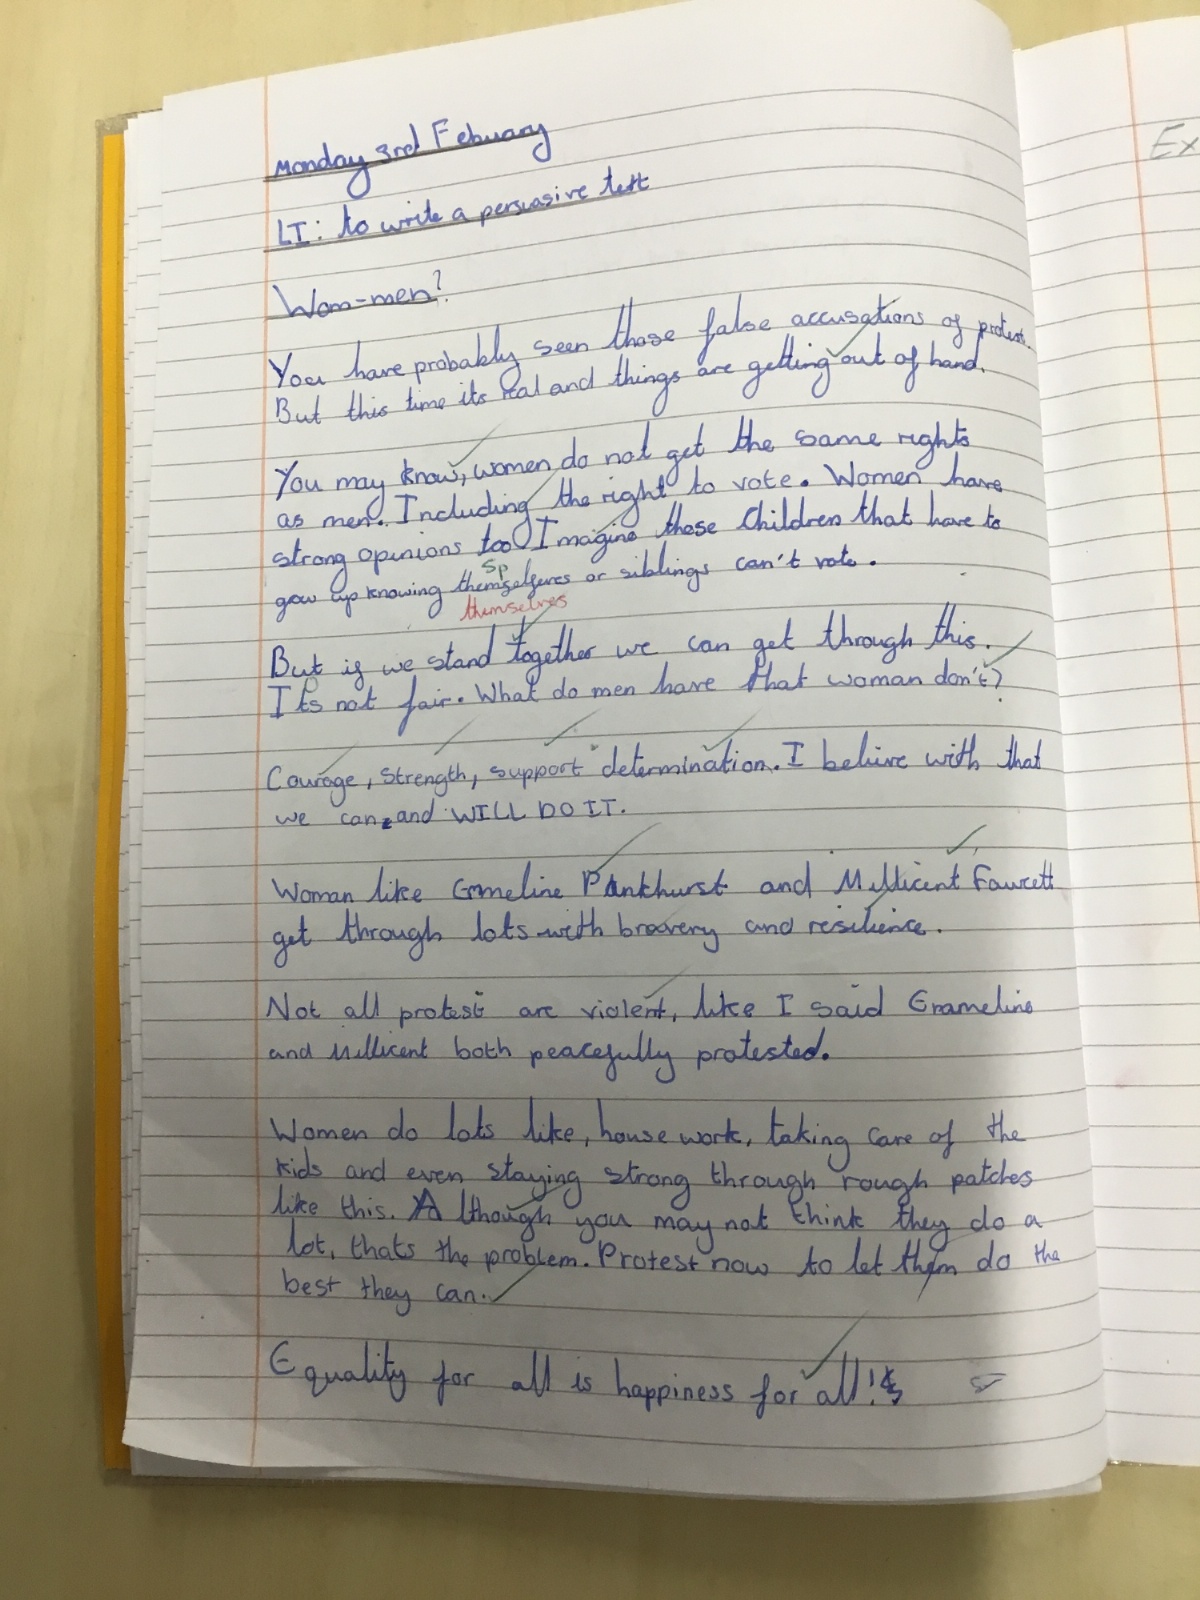 Monday 3rd Febuary
LI: to write a persuasive text
Wom-men?
You have probably seen those false accusations of protest.
But this time its real and things are getting out of hand.
You may know, women do not get the same rights
as men. Including the right to vote. Women have
strong opinions too! Imagine those Children that have to
Sp
grow up knowing themselfves or siblings can't vote.
themselves
But if we stand together we can get through this.
It's not fair. What do men have that woman don't?
Courage, strength, support determination. I believe with that
we can and WILL DO IT.
Woman like Emeline Pankhurst and Millicent Fawcett
get through lots with bravery and resilience.
Not all protest are violent, like I said Emeline
and Millicent both peacefully protested.
Women do lots like, house work, taking care of the
kids and even staying strong through rough patches
like this. Although you may not think they do a
lot, thats the problem. Protest now to let them do the
best they can.
Equality for all is happiness for all!
Ex